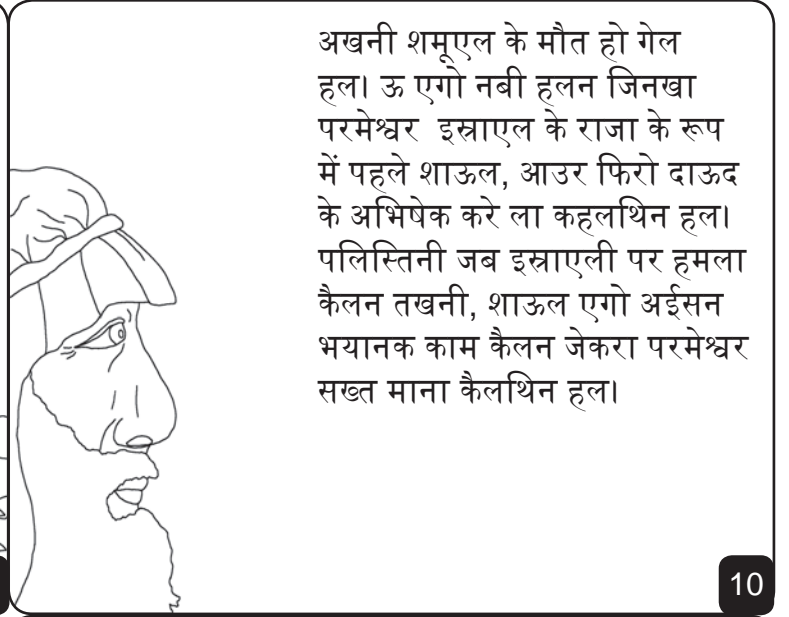 अखनी शमूएल के मौत हो गेल
हल। ऊ एगो नबी हलन जिनखा
परमेश्वर इस्राएल के राजा के रूप
में पहले शाऊल, आउर फिरो दाऊद
के अभिषेक करे ला कहलथिन हल।
पलिस्तिनी जब इस्राएली पर हमला
कैलन तखनी, शाऊल एगो अईसन
भयानक काम कैलन जेकरा परमेश्वर
सख्त माना कैलथिन हल।
10